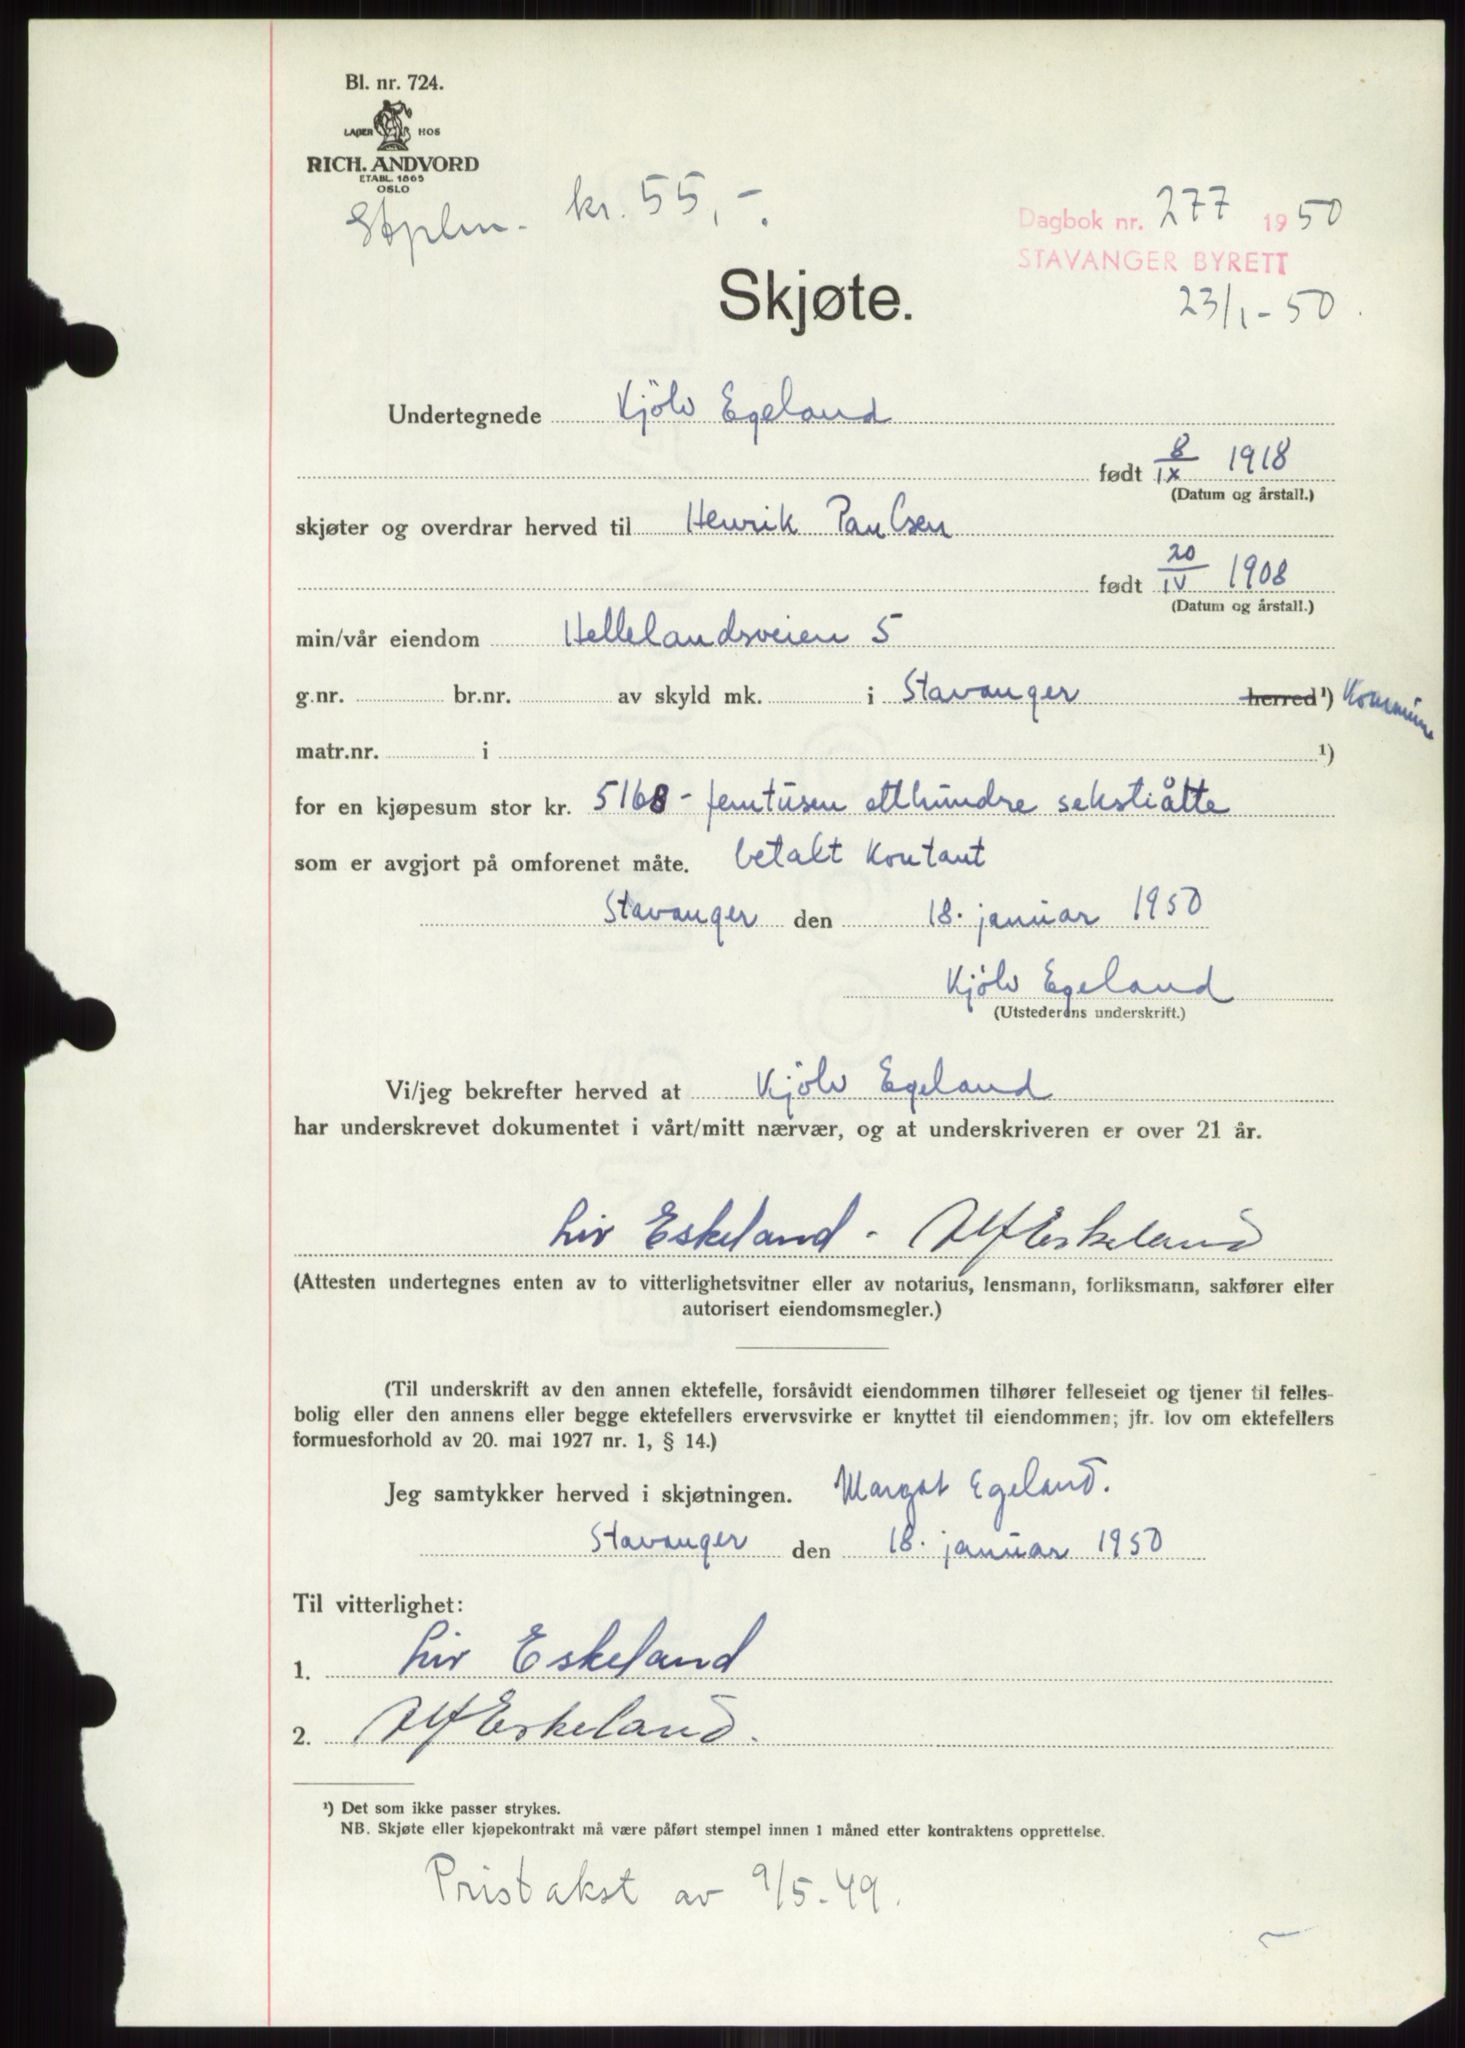 Bl. nr. 724.
LAGER HOS
RICH. ANDVORD
ETABL. 1865
OSLO
kr. 55,-.
Dagbok nr. 277 1950
STAVANGER BYRETT
23/1-50.
Skjøte.
Undertegnede Kjölv Egeland
født 8/IX 1918
(Datum og årstall.)
skjøter og overdrar herved til Henrik Paulsen
født 20/IV 1908
(Datum og årstall.)
min/vår eiendom Hellelandsveien 5
g.nr. br.nr. av skyld mk. i Stavanger herred ¹) Kommune
matr.nr. i ¹)
for en kjøpesum stor kr. 5168 - femtusen etthundre sekstiåtte
som er avgjort på omforenet måte. betalt kontant
Stavanger den 18. januar 1950
Kjölv Egeland
(Utstederens underskrift.)
Vi/jeg bekrefter herved at Kjölv Egeland
har underskrevet dokumentet i vårt/mitt nærvær, og at underskriveren er over 21 år.
Liv Eskeland - Alf Eskeland
(Attesten undertegnes enten av to vitterlighetsvitner eller av notarius, lensmann, forliksmann, sakfører eller
autorisert eiendomsmegler.)
(Til underskrift av den annen ektefelle, forsåvidt eiendommen tilhører felleseiet og tjener til felles-
bolig eller den annens eller begge ektefellers ervervsvirke er knyttet til eiendommen; jfr. lov om ektefellers
formuesforhold av 20. mai 1927 nr. 1, § 14.)
Jeg samtykker herved i skjøtningen. Margot Egeland.
Stavanger den 18. januar 1950
Til vitterlighet:
1. Liv Eskeland
2. Alf Eskeland.
¹) Det som ikke passer strykes.
NB. Skjøte eller kjøpekontrakt må være påført stempel innen 1 måned etter kontraktens opprettelse.
Pristakst av 9/5-49.